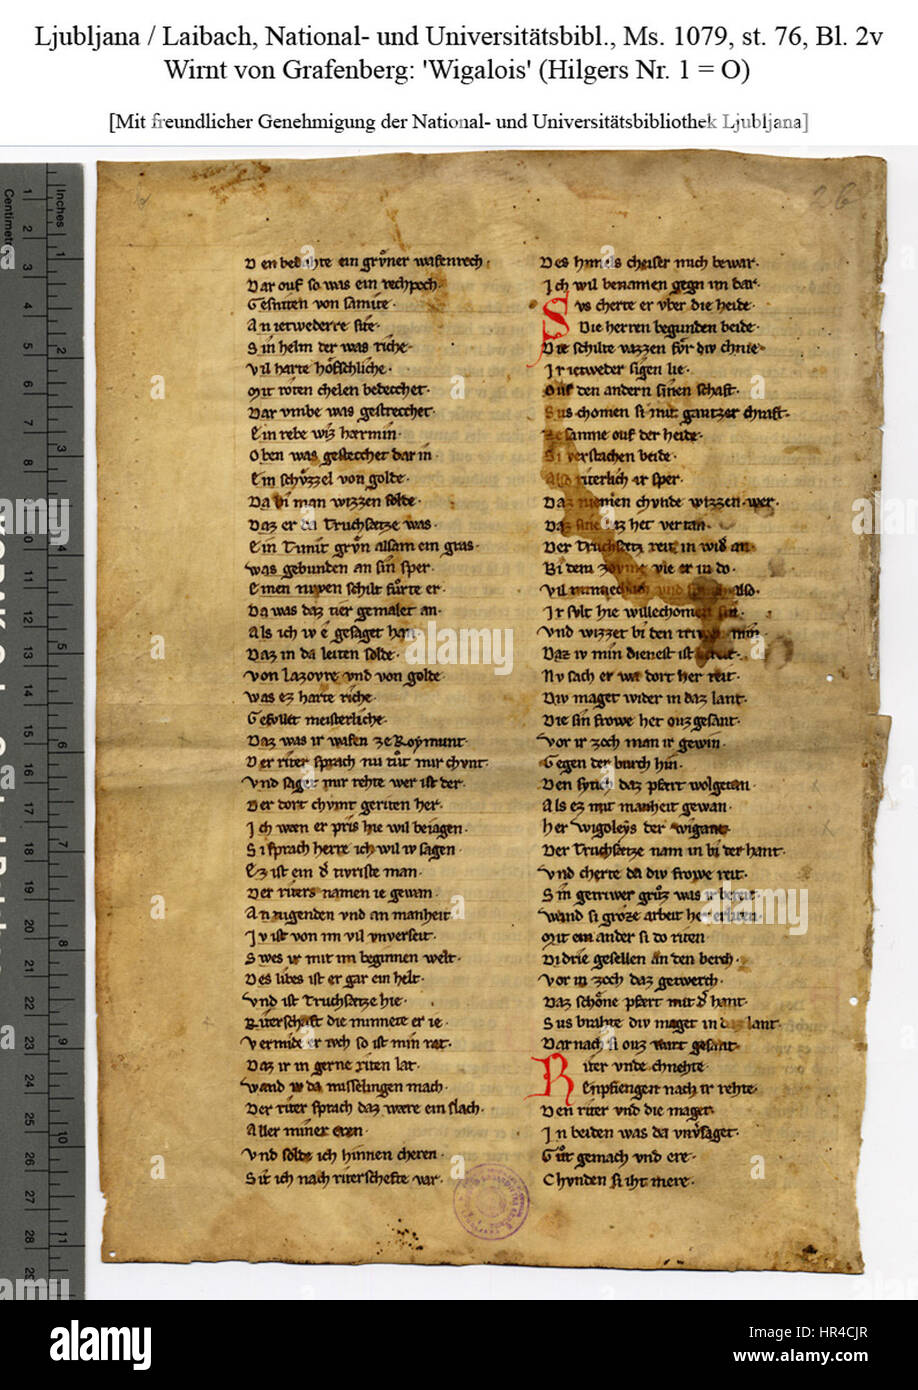 Ljubljana / Laibach, National- und Universitätsbibl., Ms. 1079, st. 76, Bl. 2v
Wirnt von Grafenberg: 'Wigalois' (Hilgers Nr. 1 = O)
[Mit freundlicher Genehmigung der National- und Universitätsbibliothek Ljubljana]
26
Den ein grvͦner wafenrech·
Dar ouf so was ein rechpoch·
Gesniten von samite·
An ietwederre site·
Sin helm der was riche·
Vil harte hoͤfschliche·
Mit roten chelen bedecchet·
Dar vmbe was gestrecchet·
Ein rebe wiz hærmin·
Oben was gestecchet dar in·
Ein schvͤzzel von golde·
Da bi man wizzen solde·
Daz er da Truchsetze was·
Ein Timit grvͤn alsam ein gras·
was gebunden an sin sper·
Einen niwen schilt fuͦrte er·
Da was daz tier gemalet an·
Als ich iv e gesaget han·
Daz in da leiten solde·
Von lazovre vnd von golde·
was ez harte riche·
Gefullet meisterliche·
Daz was ir wafen ze Roymunt·
Der riter sprach nu tuͦt mir chunt·
Vnd saget mir rehte wer ist der·
Der dort chvmt geriten her·
Ich wæn er pris hie wil beiagen·
Si sprach herre ich wil iv sagen·
Ez ist ein d͛ tivriste man·
Der riters namen ie gewan·
An tugenden vnd an manheit·
Iv ist von im vil vnverseit·
Swes ir mit im beginnen welt·
Des libes ist er gar ein helt·
Vnd ist Truchsetze hie·
Riterschaft die minnete er ie·
Vermide er iuch so ist min rat·
Daz ir in gerne riten lat·
wand iv da misselingen mach·
Der riter sprach daz were ein slach·
Aller miner eren·
Vnd solde ich hinnen cheren·
Sit ich nach riterschefte var·
Des himels cheiser mich bewar·
Ich wil benamen gegn im dar·
Svs cherte er vber die heide·
Die herren begunden beide·
Die schilte vazzen fuͤr div chnie·
Ir ietweder sigen lie·
Ouf den andern sinen schaft·
Sus chomen si mit gantzer chraft·
Zesamne ouf der heide·
Si verstachen beide·
Also riterlich ir sper·
Daz niemen chvnde wizzen wer·
Daz sine baz het vertan·
Der Truchsetz reit in wid͛ an·
Bi dem zovme vie er in do·
Vil
Ir sult hie willechomen sin·
Vnd wizzet bi den triwen min
Daz iv min dienest ist bereit·
Nv sach er wa dort her reit·
Div maget wider in daz lant·
Die sin frowe het ouz gesant·
Vor ir zoch man ir gewin·
Gegen der burch hin·
Den sytich daz pfært wolgetan·
Als ez mit manheit gewan·
her Wigoleys der wigant
Der Truchsetze nam in bi der hant·
Vnd cherte da div frowe reit·
Sin getriwer gruͦz was ir bereit·
wand si groze arbeit het erliten·
Mit ein ander si do riten
Di drie gesellen an den berch·
Vor in zoch daz getwerch·
Daz schoͤne pfært mit d͛ hant·
Sus brahte div maget in daz lant·
Dar nach si ouz wart gesant·
Riter vnde chnehte·
Enpfiengen nach ir rehte·
Den riter vnd die maget·
In beiden was da vnv͛saget·
Guͦt gemach vnd ere·
Chvnden si iht mere·
Inches
Centimetres
alamy
Image ID: HR4CJR
www.alamy.com